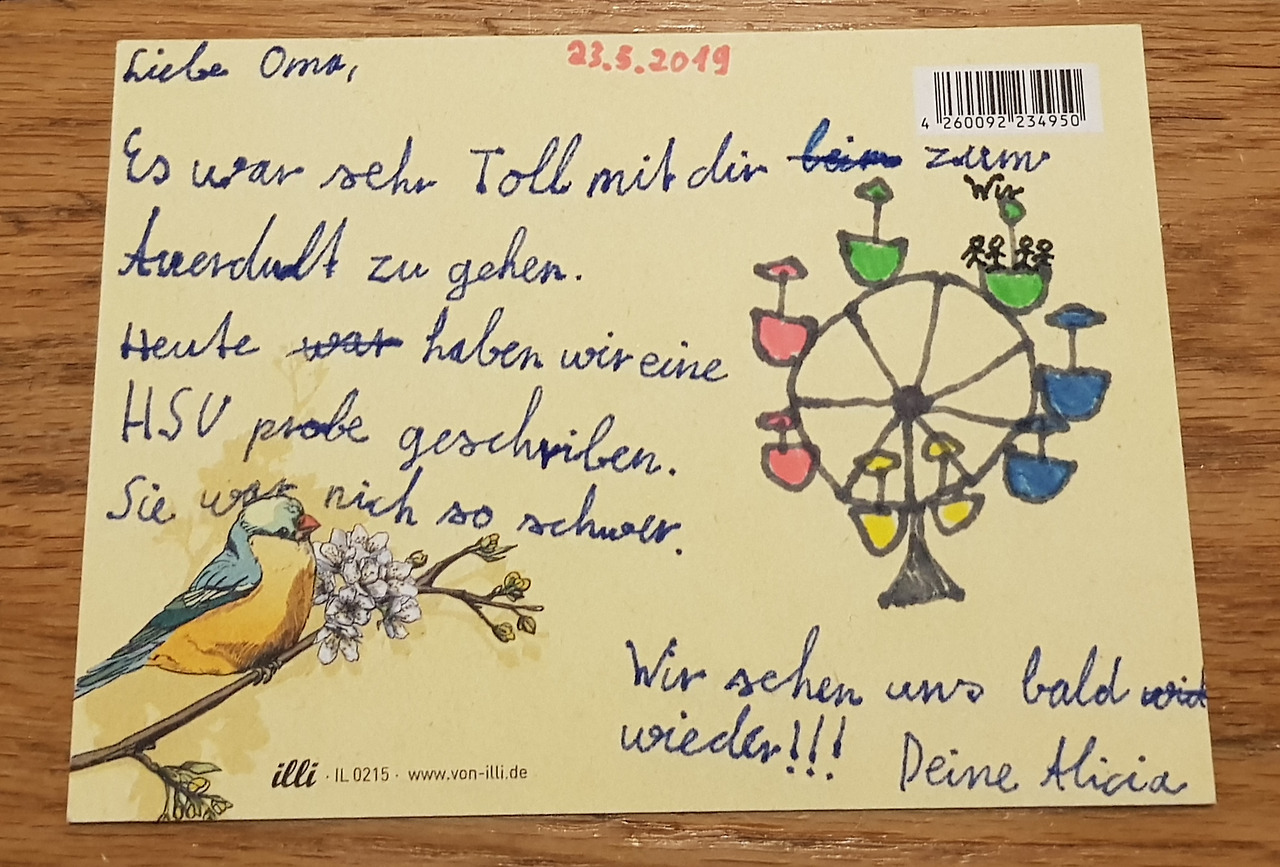 Liebe Oma,
23.5.2019
4 260092 234950
Es war sehr Toll mit dir beim zum
Auerdult zu gehen.
Wir
Heute war haben wir eine
HSU probe geschriben.
Sie war nich so schwer.
Wir sehen uns bald wid
wieder!!!
Deine Alicia
illi · IL 0215 · www.von-illi.de